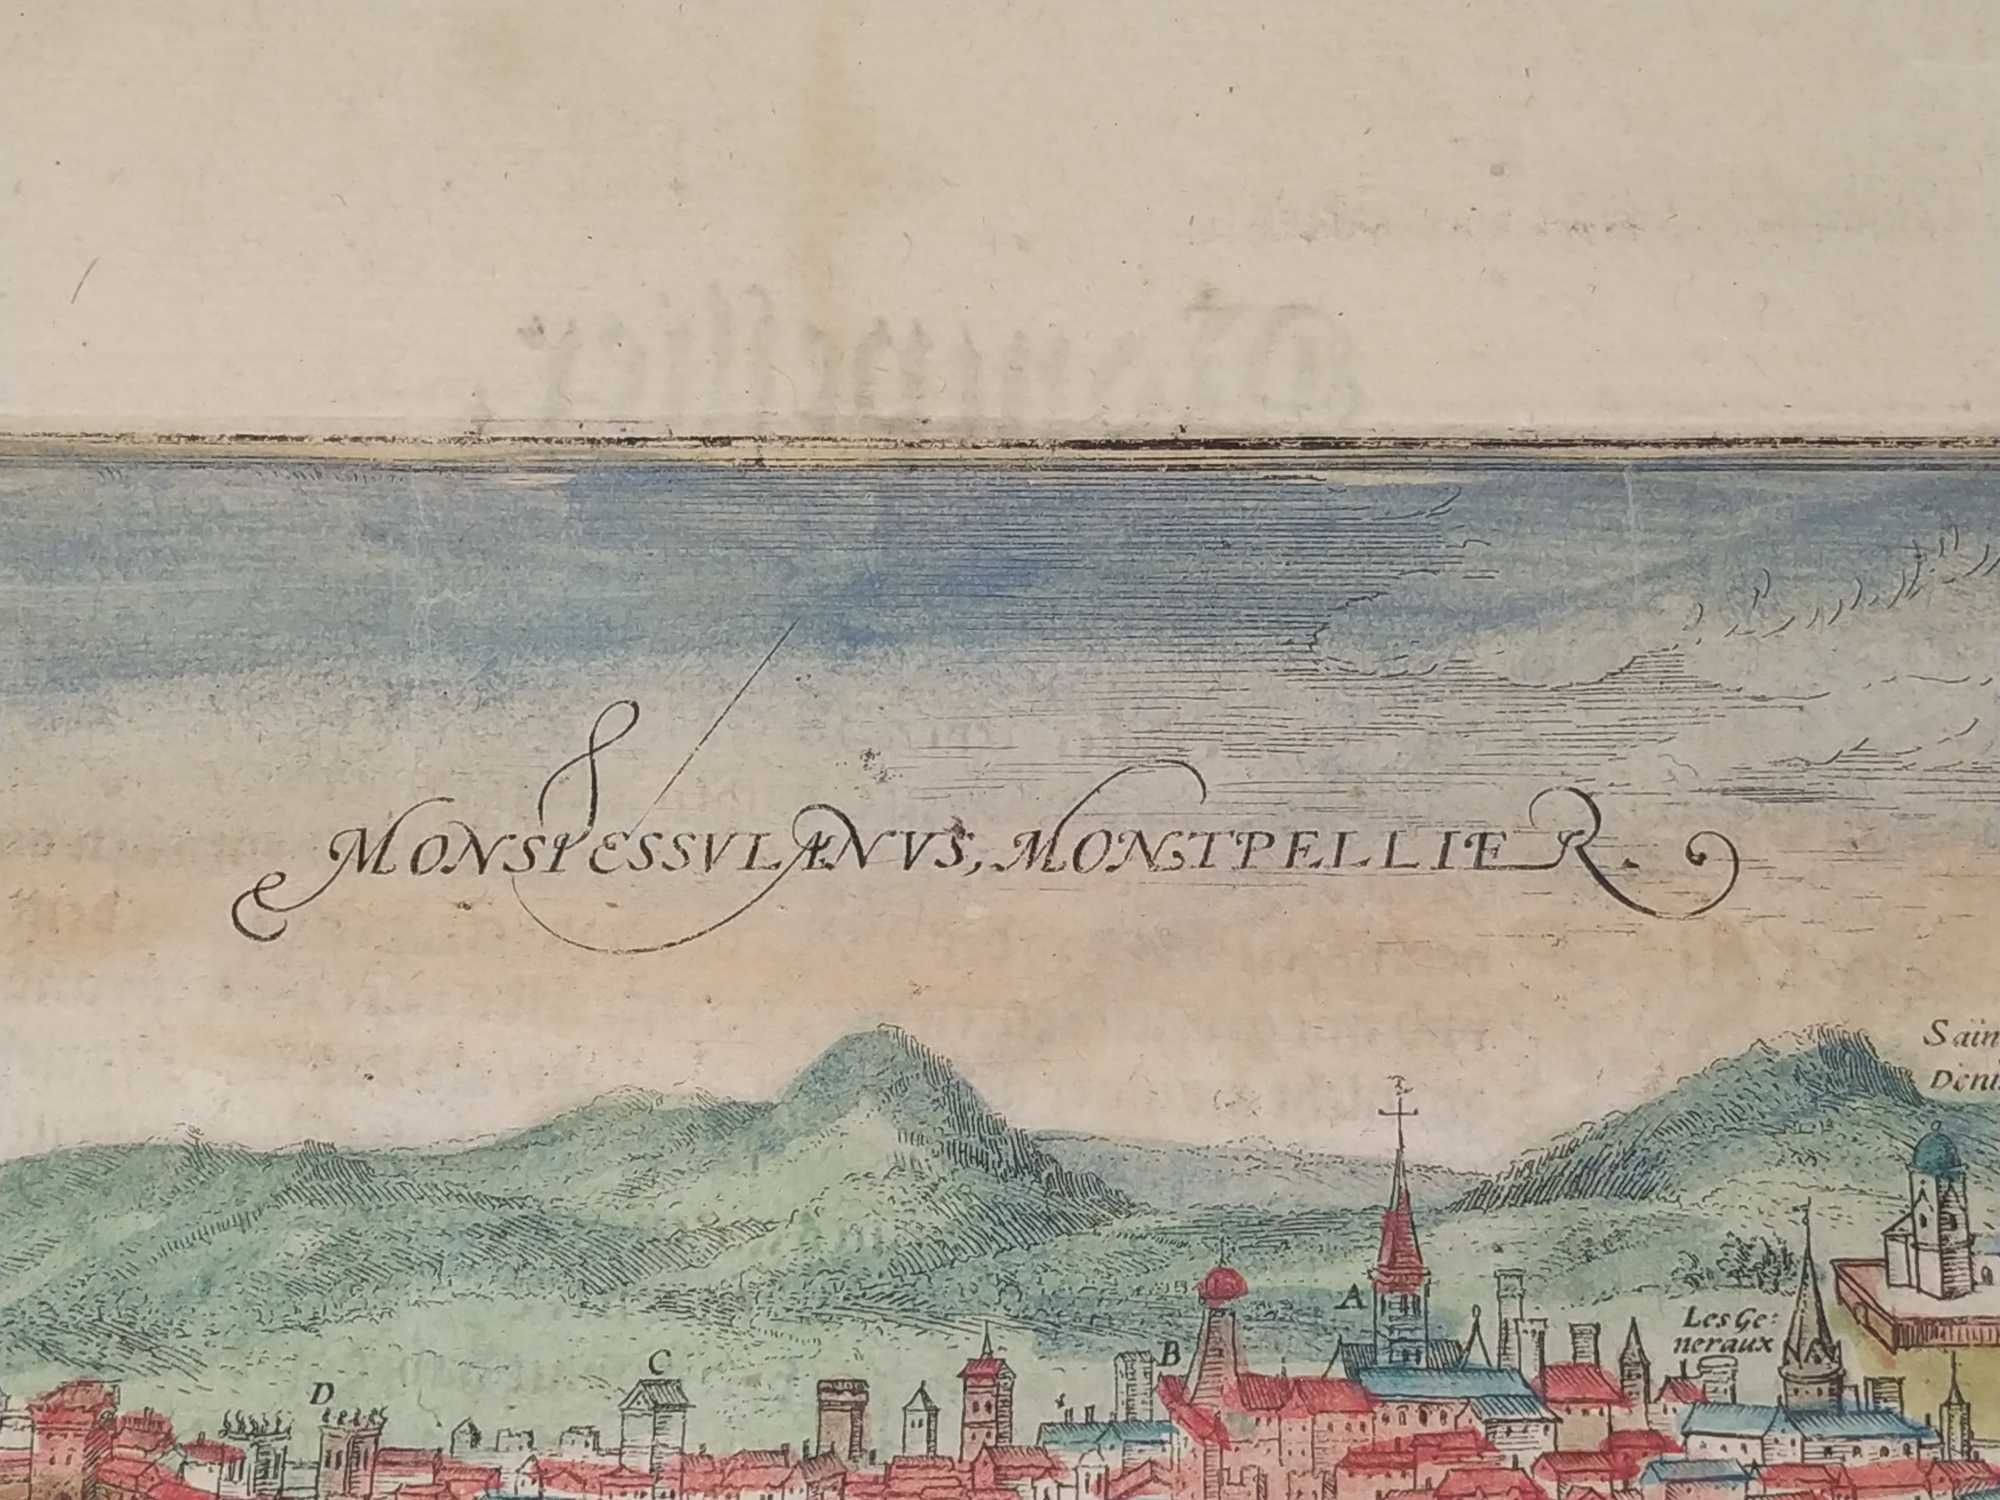 MONSPESSVLANVS, MONTPELLIER.
Sain
Deni
A
Les Ge:
neraux
B
C
D